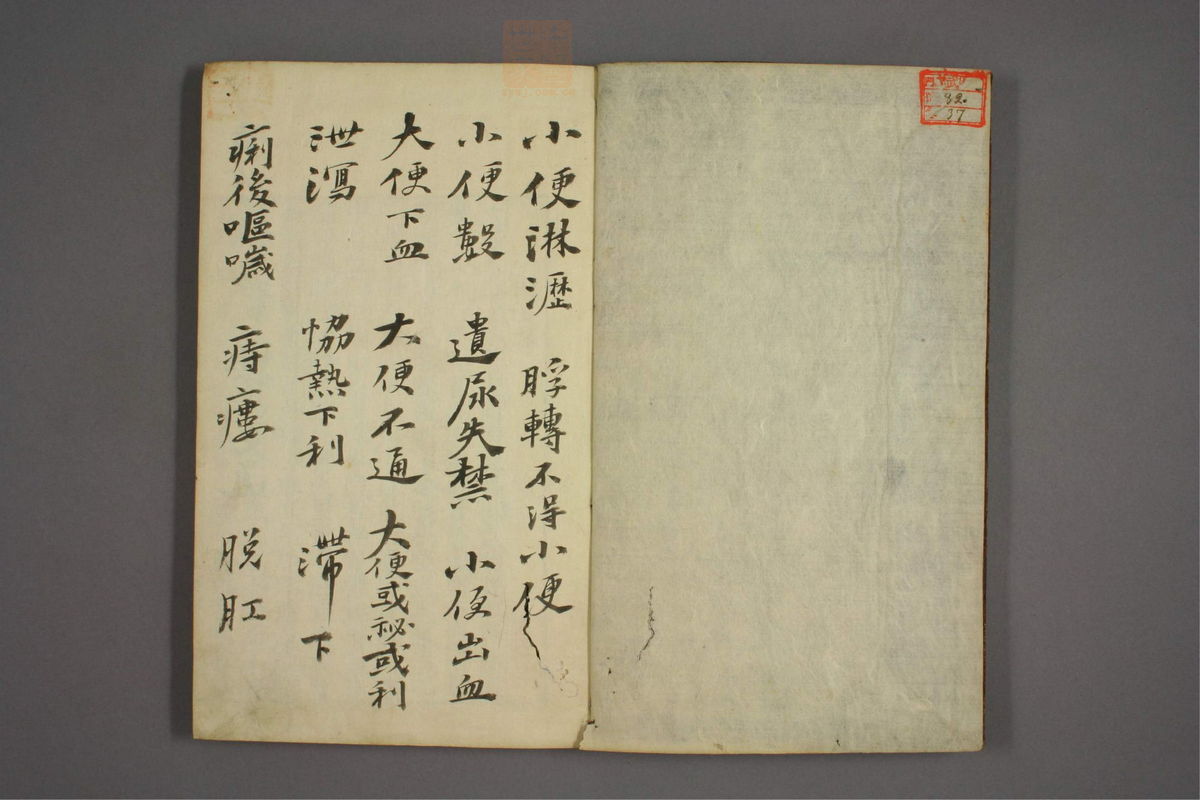 小便淋瀝 脬轉不得小便
小便數 遺尿失禁 小便出血
大便下血 大便不通 大便或秘或利
泄瀉 恊熱下利 滯下
痢後嘔噦 痔瘻 脱肛
82.
37